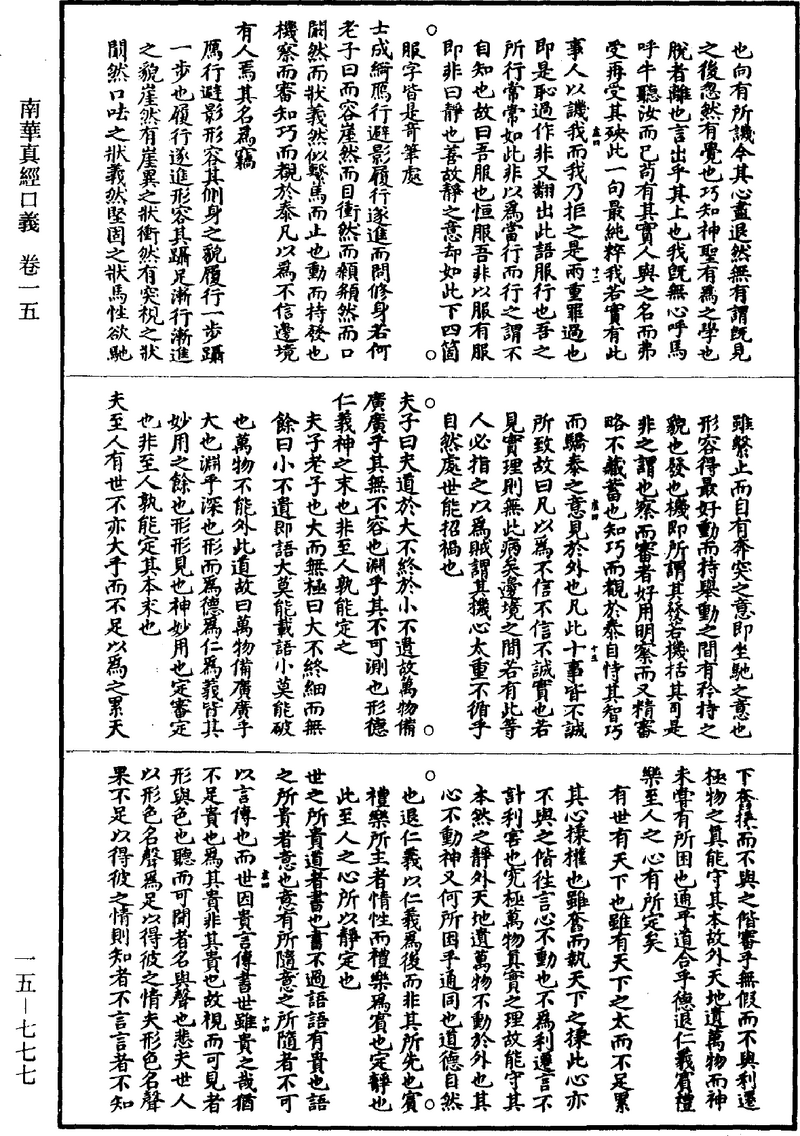 南華真經口義　卷一五
一五—七七七
也向有所譏令其心盡退然無有謂旣見
之後忽然有覺也巧知神聖有爲之學也
脫者離也言出乎其上也我旣無心呼馬
呼牛聽汝而已苟有其實人與之名而弗
受再受其殃此一句最純粹我若實有此
事人以譏我而我乃拒之是兩重罪過也
即是恥過作非又翻出此語服行也吾之
所行常常如此非以爲當行而行之謂不
自知也故曰吾服也恒服吾非以服有服
即非曰靜也善故靜之意却如此下四箇
服字皆是奇筆處
士成綺鴈行避影履行遂進而問修身若何
老子曰而容崖然而目衝然而顙頯然而口
闞然而狀義然似繫馬而止也動而持發也
機察而審知巧而覩於泰凡以爲不信邊境
有人焉其名爲竊
鴈行避影形容其側身之貌履行一步躡
一步也履行遂進形容其躡足漸行漸進
之貌崖然有崖異之狀衝然有突視之狀
闞然口呿之狀義然堅固之狀馬性欲馳
雖繫止而自有奔突之意即坐馳之意也
形容得最好動而持舉動之間有矜持之
貌也發也機即所謂其發若機括其司是
非之謂也察而審者好用明察而又精審
略不藏蓄也知巧而觀於泰自恃其智巧
而驕泰之意見於外也凡此十事皆不誠
所致故曰凡以爲不信不信不誠實也若
見實理則無此病矣邊境之間若有此等
人必指之以爲賊謂其機心太重不循乎
自然處世能招禍也
夫子曰夫道於大不終於小不遺故萬物備
廣廣乎其無不容也淵乎其不可測也形德
仁義神之末也非至人孰能定之
夫子老子也大而無極曰大不終細而無
餘曰小不遺即語大莫能載語小莫能破
也萬物不能外此道故曰萬物備廣廣乎
大也淵乎深也形而爲德爲仁爲義皆其
妙用之餘也形形見也神妙用也定審定
也非至人孰能定其本末也
夫至人有世不亦大乎而不足以爲之累天
下奮棅而不與之偕審乎無假而不與利遷
極物之眞能守其本故外天地遺萬物而神
未嘗有所困也通乎道合乎德退仁義賓禮
樂至人之心有所定矣
有世有天下也雖有天下之太而不足累
其心棅權也雖奮而執天下之棅此心亦
不與之偕徃言心不動也不爲利遷言不
計利害也究極萬物真實之理故能守其
本然之靜外天地遺萬物不動於外也其
心不動神又何所困乎通同也道德自然
也退仁義以仁義爲後而非其所先也賓
禮樂所主者情性而禮樂爲賓也定靜也
此至人之心所以靜定也
世之所貴道者書也書不過語語有貴也語
之所貴者意也意有所隨意之所隨者不可
以言傳也而世因貴言傳書世雖貴之哉猶
不足貴也爲其貴非其貴也故視而可見者
形與色也聽而可聞者名與聲也悲夫世人
以形色名聲爲足以得彼之情夫形色名聲
果不足以得彼之情則知者不言言者不知